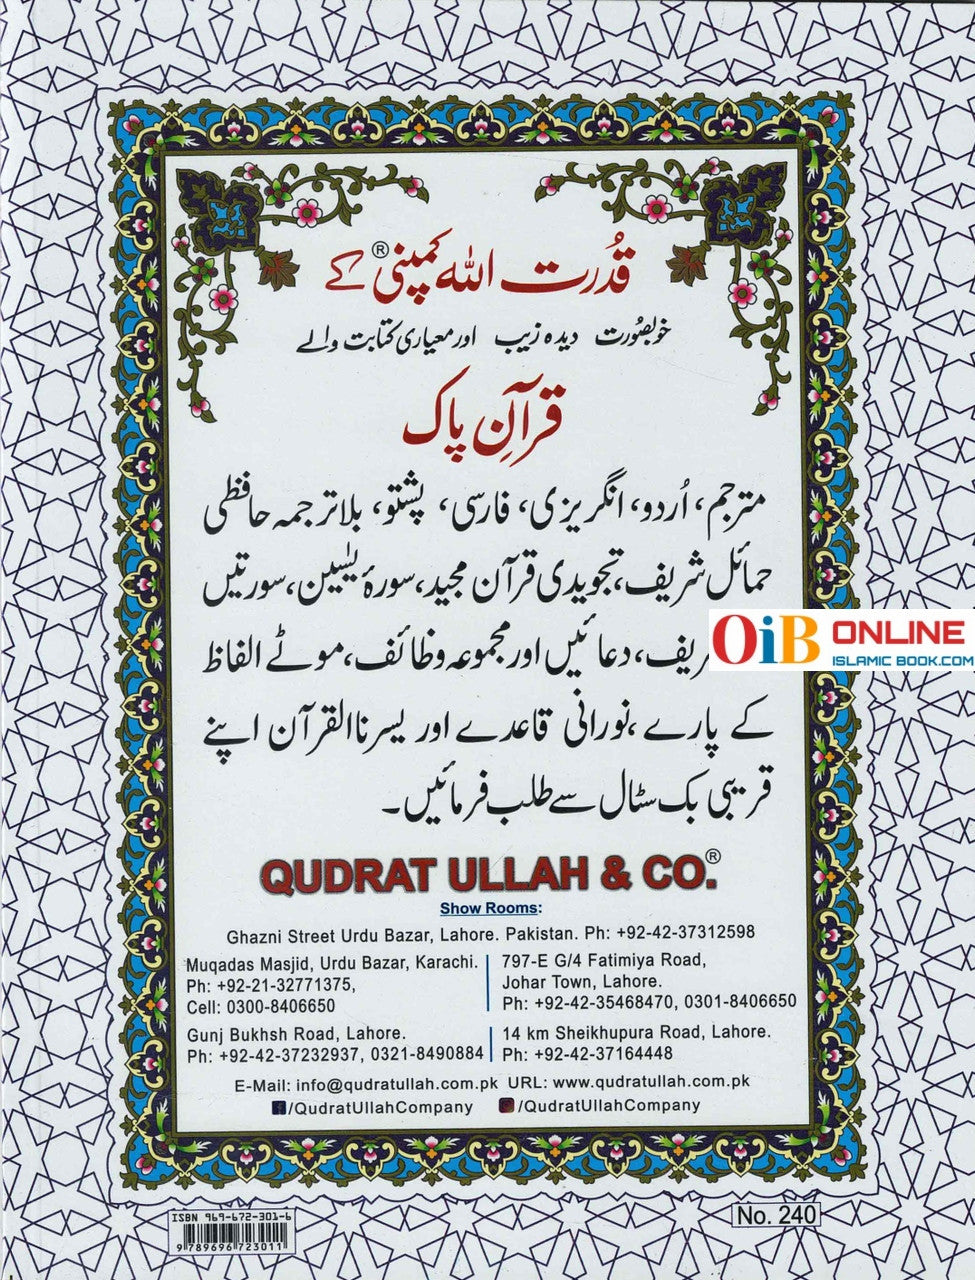 قُدرت اللہ کمپنی® کے
خوبصُورت دیدہ زیب اور معیاری کتابت والے
قرآنِ پاک
مترجم، اُردو، انگریزی، فارسی، پشتو، بلا ترجمہ حافظی
حمائل شریف، تجویدی قرآن مجید، سورۂ یٰسین، سورتیں
دعائیں اور مجموعہ وظائف، موٹے الفاظ
OiB ONLINE
ISLAMIC BOOK.COM
کے پارے، نورانی قاعدے اور یسرنا القرآن اپنے
قریبی بک سٹال سے طلب فرمائیں۔
QUDRAT ULLAH & CO.®
Show Rooms:
Ghazni Street Urdu Bazar, Lahore. Pakistan. Ph: +92-42-37312598
Muqadas Masjid, Urdu Bazar, Karachi.
Ph: +92-21-32771375,
Cell: 0300-8406650
797-E G/4 Fatimiya Road,
Johar Town, Lahore.
Ph: +92-42-35468470, 0301-8406650
Gunj Bukhsh Road, Lahore.
Ph: +92-42-37232937, 0321-8490884
14 km Sheikhupura Road, Lahore.
Ph: +92-42-37164448
E-Mail: info@qudratullah.com.pk URL: www.qudratullah.com.pk
/QudratUllahCompany /QudratUllahCompany
ISBN 969-672-301-6
9 789696 723011
No. 240